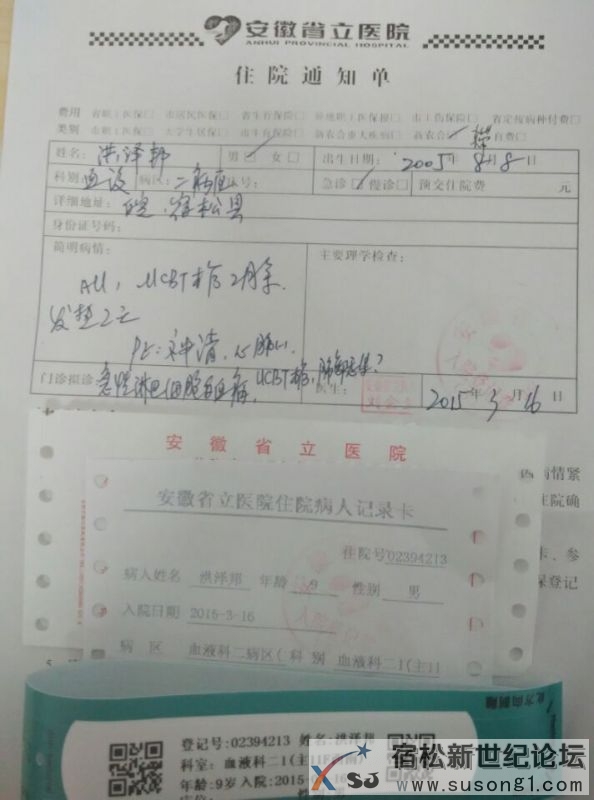 安徽省立医院
ANHUI PROVINCIAL HOSPITAL
住院通知单
费用 省职工医保□ 市居民医保□ 省生育保险□ 异地职工医保报□ 市工伤保险□ 省定按病种付费□
类别 市职工医保□ 大学生居保□ 市生育保险□ 新农合重大疾病□ 新农合 自费□
姓名: 洪泽邦 男 女□ 出生日期: 2005年 8月8日
科别 血液 病区: 二病区 急诊 慢诊□ 预交住院费 元
详细地址: 宿松县
身份证号码:
简明病情: 主要理学检查:
ALL, UCBT术后2月余.
发热2天
PE: 神清,
门诊拟诊: 急性淋巴细胞白血病, UCBT术后, 肺部感染? 医生: 2015年3月16日
病情紧
安徽省立医院
住院确
安徽省立医院住院病人记录卡
住院号02394213
卡、参
病人姓名 洪泽邦 年龄 9 性别 男
保登记
入院日期 2015-3-16
病区 血液科二病区( 科别 血液科二1(主11
5
登记号:02394213 姓名:洪泽邦
科室: 血液科二1(主11
年龄:9岁 入院:2015-0
宿松新世纪论坛
XSJ
www.susong1.com